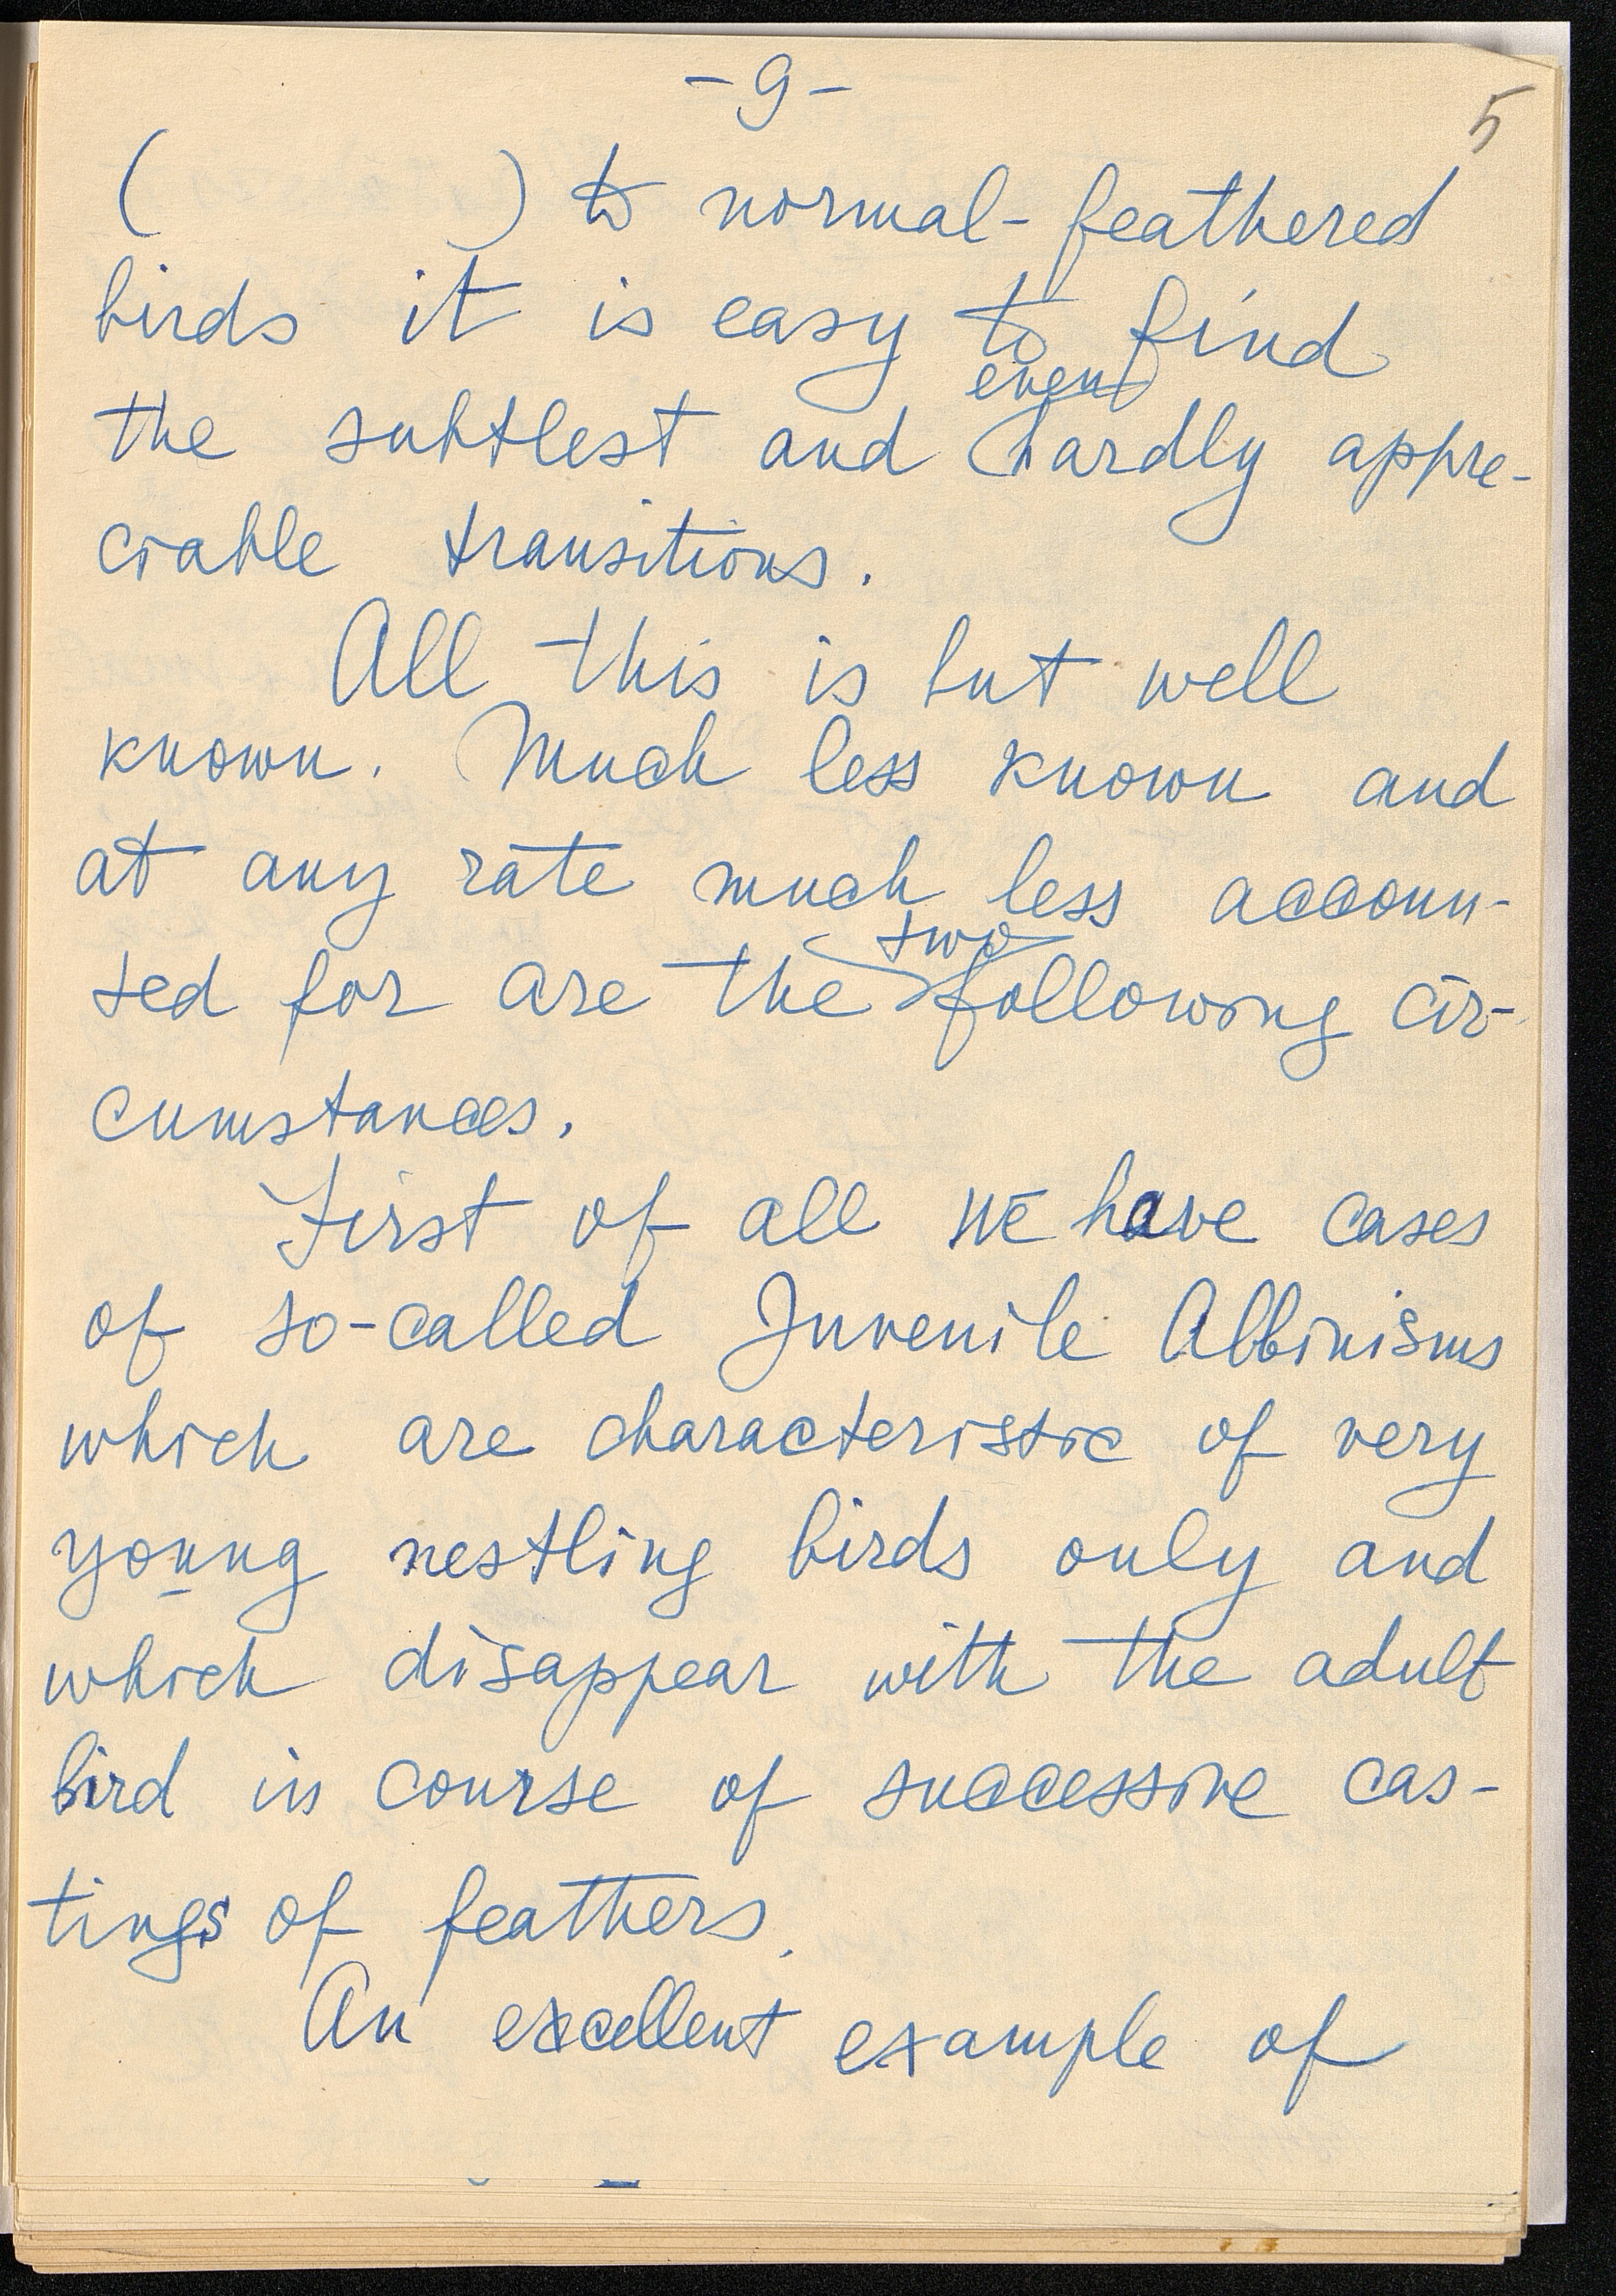 -9-
5
( ) to normal-feathered
birds it is easy to find
even
the subtlest and hardly appre-
ciable transitions.
All this is but well
known. Much less known and
at any rate much less accoun-
two
ted for are the following cir-
cumstances.
First of all we have cases
of so-called Juvenile Albinisms
which are characteristic of very
young nestling birds only and
which disappear with the adult
bird in course of successive cas-
tings of feathers.
An excellent example of